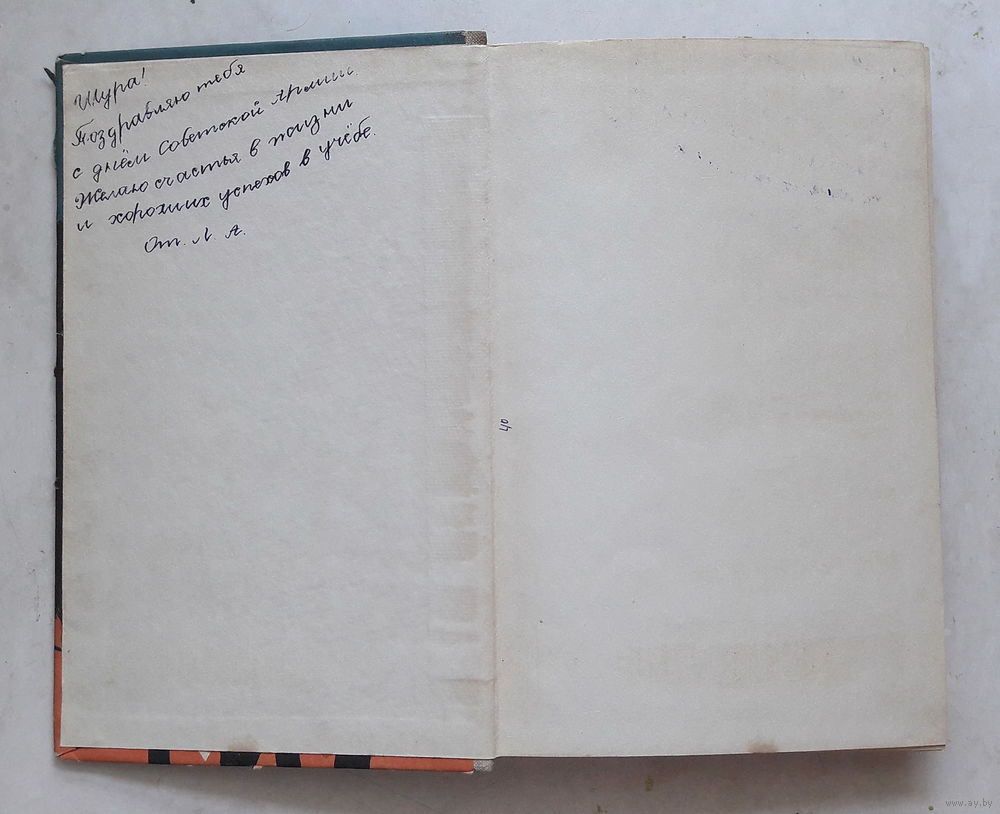 Шура!
Поздравляю тебя
с днём Советской Армии.
Желаю счастья в жизни
и хороших успехов в учёбе.
От. Л. А.
40
www.ay.by